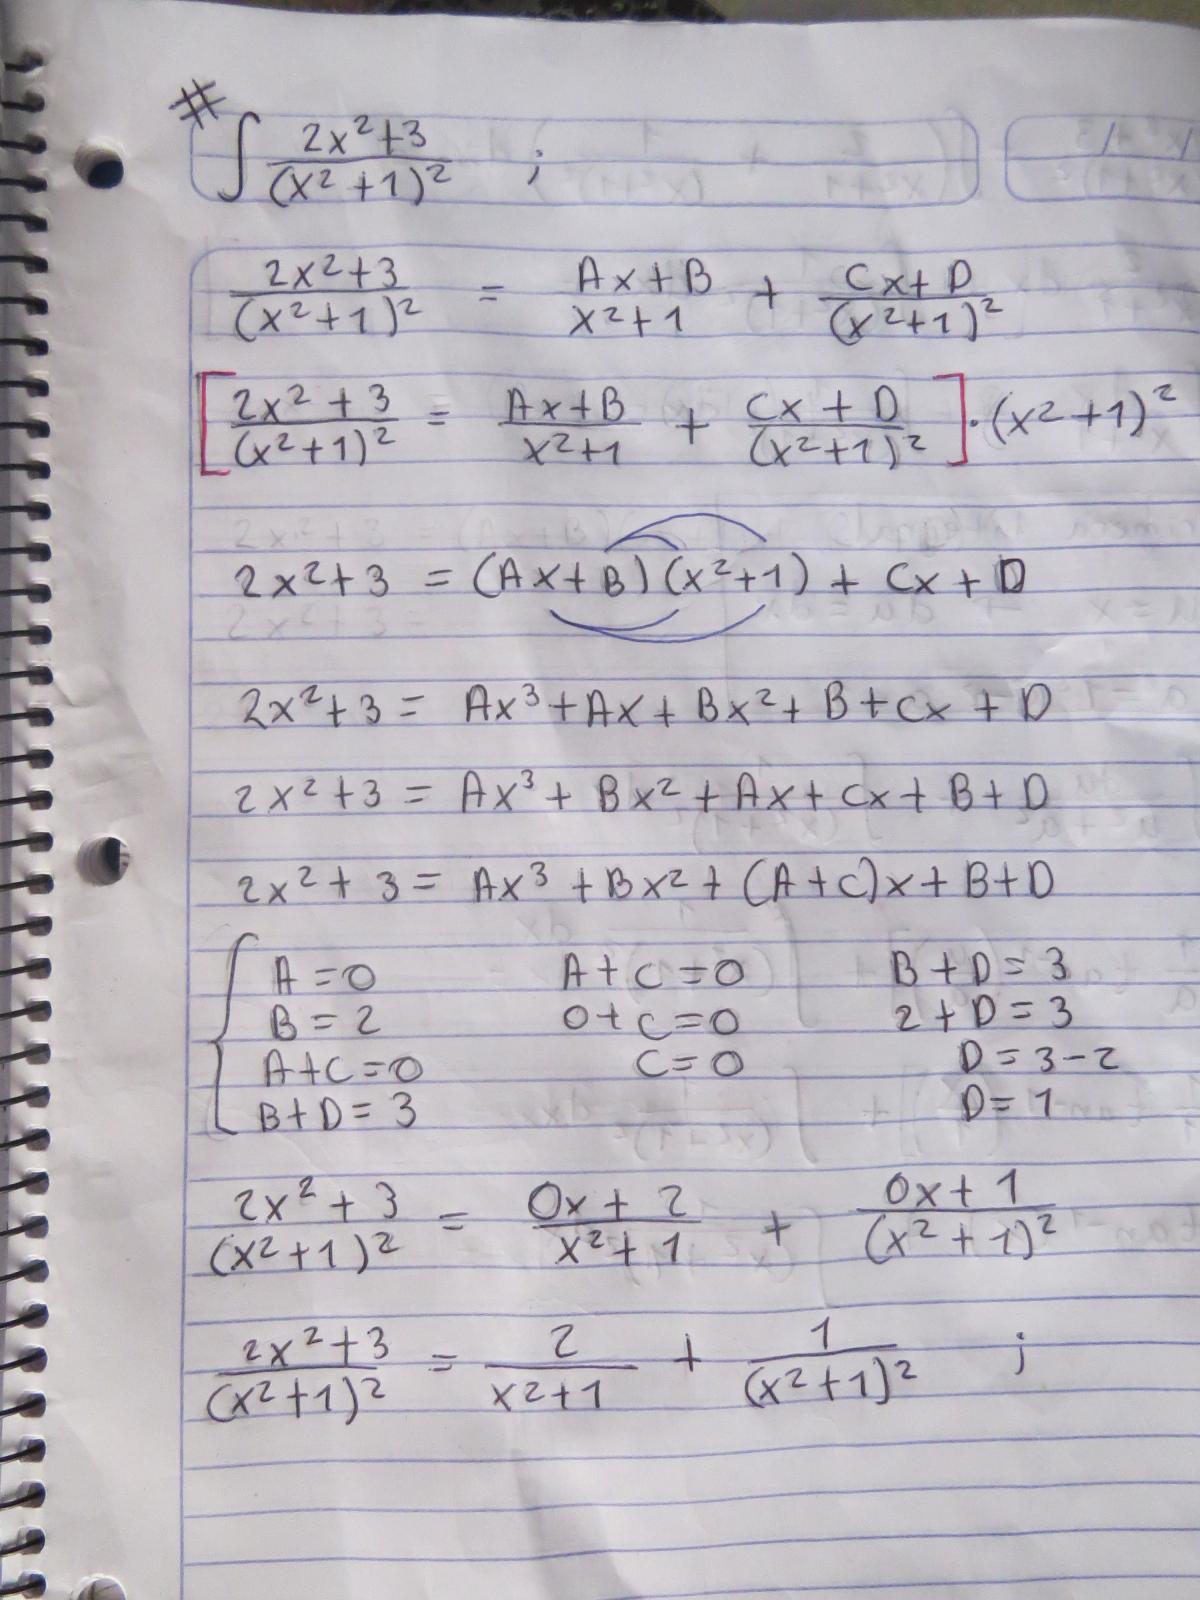 #
∫ 2x²+3 / (x²+1)² ;
2x²+3 / (x²+1)² = Ax+B / x²+1 + Cx+D / (x²+1)²
[ 2x²+3 / (x²+1)² = Ax+B / x²+1 + Cx+D / (x²+1)² ] · (x²+1)²
2x²+3 = (Ax+B)(x²+1) + Cx+D
2x²+3 = Ax³+Ax+Bx²+B+Cx+D
2x²+3 = Ax³+Bx²+Ax+Cx+B+D
2x²+3 = Ax³+Bx²+(A+C)x+B+D
{ A=0 A+C=0 B+D=3
B=2 0+C=0 2+D=3
A+C=0 C=0 D=3-2
B+D=3 D=1
2x²+3 / (x²+1)² = 0x+2 / x²+1 + 0x+1 / (x²+1)²
2x²+3 / (x²+1)² = 2 / x²+1 + 1 / (x²+1)² ;